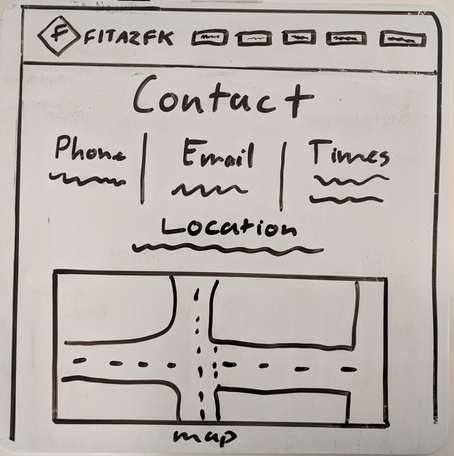 F FITAZFK
Contact
Phone Email Times
Location
map